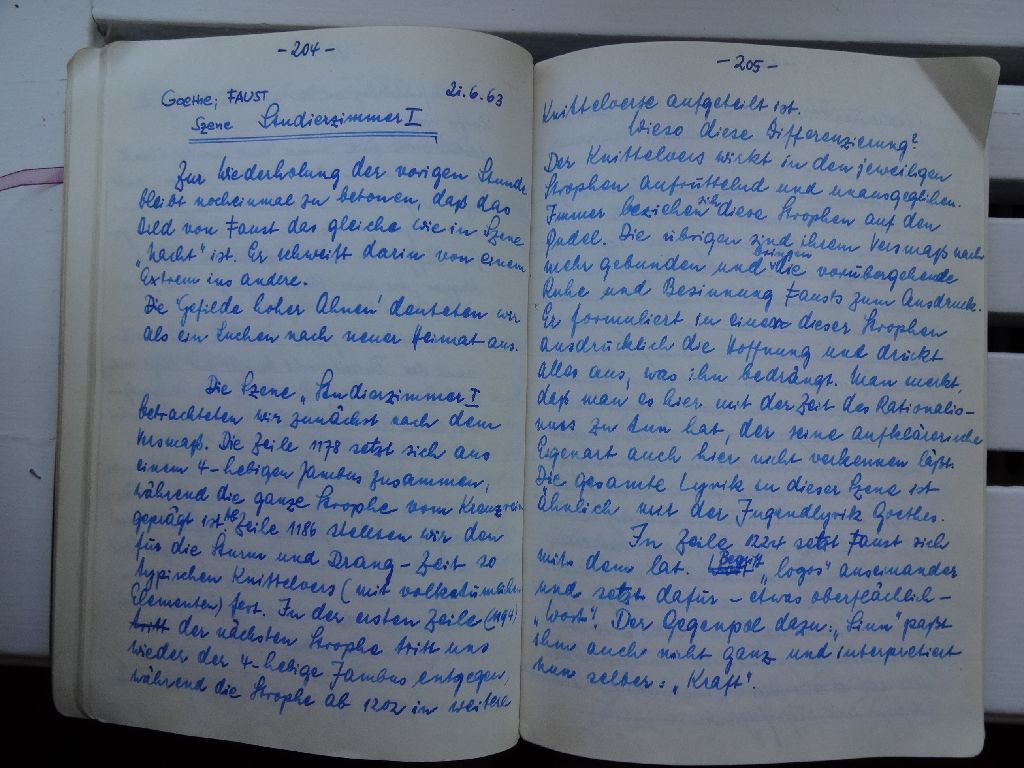 -204-
Goethe; FAUST 21.6.63
Szene Studierzimmer I
Zur Wiederholung der vorigen Stunde
bleibt nocheinmal zu betonen, daß das
Bild von Faust das gleiche wie in Szene
„Nacht" ist. Er schweift darin von einem
Extrem ins andere.
Die 'Gefilde hoher Ahnen' deuteten wir
als ein Suchen nach neuer Heimat aus.
Die Szene „Studierzimmer I
betrachteten wir zunächst nach dem
Versmaß. Die Zeile 1178 setzt sich aus
einem 4-hebigen Jambus zusammen,
während die ganze Strophe vom Kreuzreim
geprägt ist. Ab Zeile 1186 stellen wir den
für die Sturm und Drang-Zeit so
typischen Knittelvers (mit volkstümlichen
Elementen) fest. In der ersten Zeile (1194)
tritt der nächsten Strophe tritt uns
wieder der 4-hebige Jambus entgegen,
während die Strophe ab 1202 in weitere
-205-
Knittelverse aufgeteilt ist.
Wieso diese Differenzierung?
Der Knittelvers wirkt in den jeweiligen
Strophen aufrüttelnd und unausgeglichen.
Immer beziehen sich diese Strophen auf den
Pudel. Die übrigen sind ihrem Versmaß nach
mehr gebunden und bringen die vorübergehende
Ruhe und Besinnung Fausts zum Ausdruck.
Er formuliert in einer dieser Strophen
ausdrücklich die Hoffnung und drückt
alles aus, was ihn bedrängt. Man merkt,
daß man es hier mit der Zeit des Rationalis-
mus zu tun hat, der seine aufklärerische
Eigenart auch hier nicht verkennen läßt.
Die gesamte Lyrik in dieser Szene ist
ähnlich mit der Jugendlyrik Goethes.
In Zeile 1224 setzt Faust sich
mit dem lat. Begriff „logos" auseinander
und setzt dafür - etwas oberflächlich -
„Wort". Der Gegenpol dazu: „Sinn" paßt
ihm auch nicht ganz und interpretiert
nun selber: „Kraft".